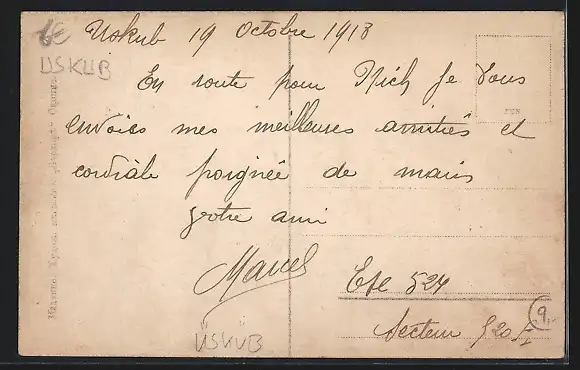 Uskub 19 Octobre 1918
USKUB
En route pour Nich Je vous
envoies mes meilleures amitiés et
cordiale poignée de mains
Votre ami
Marcel
Etc 524
Secteur 520
9.
ÜSKÜB